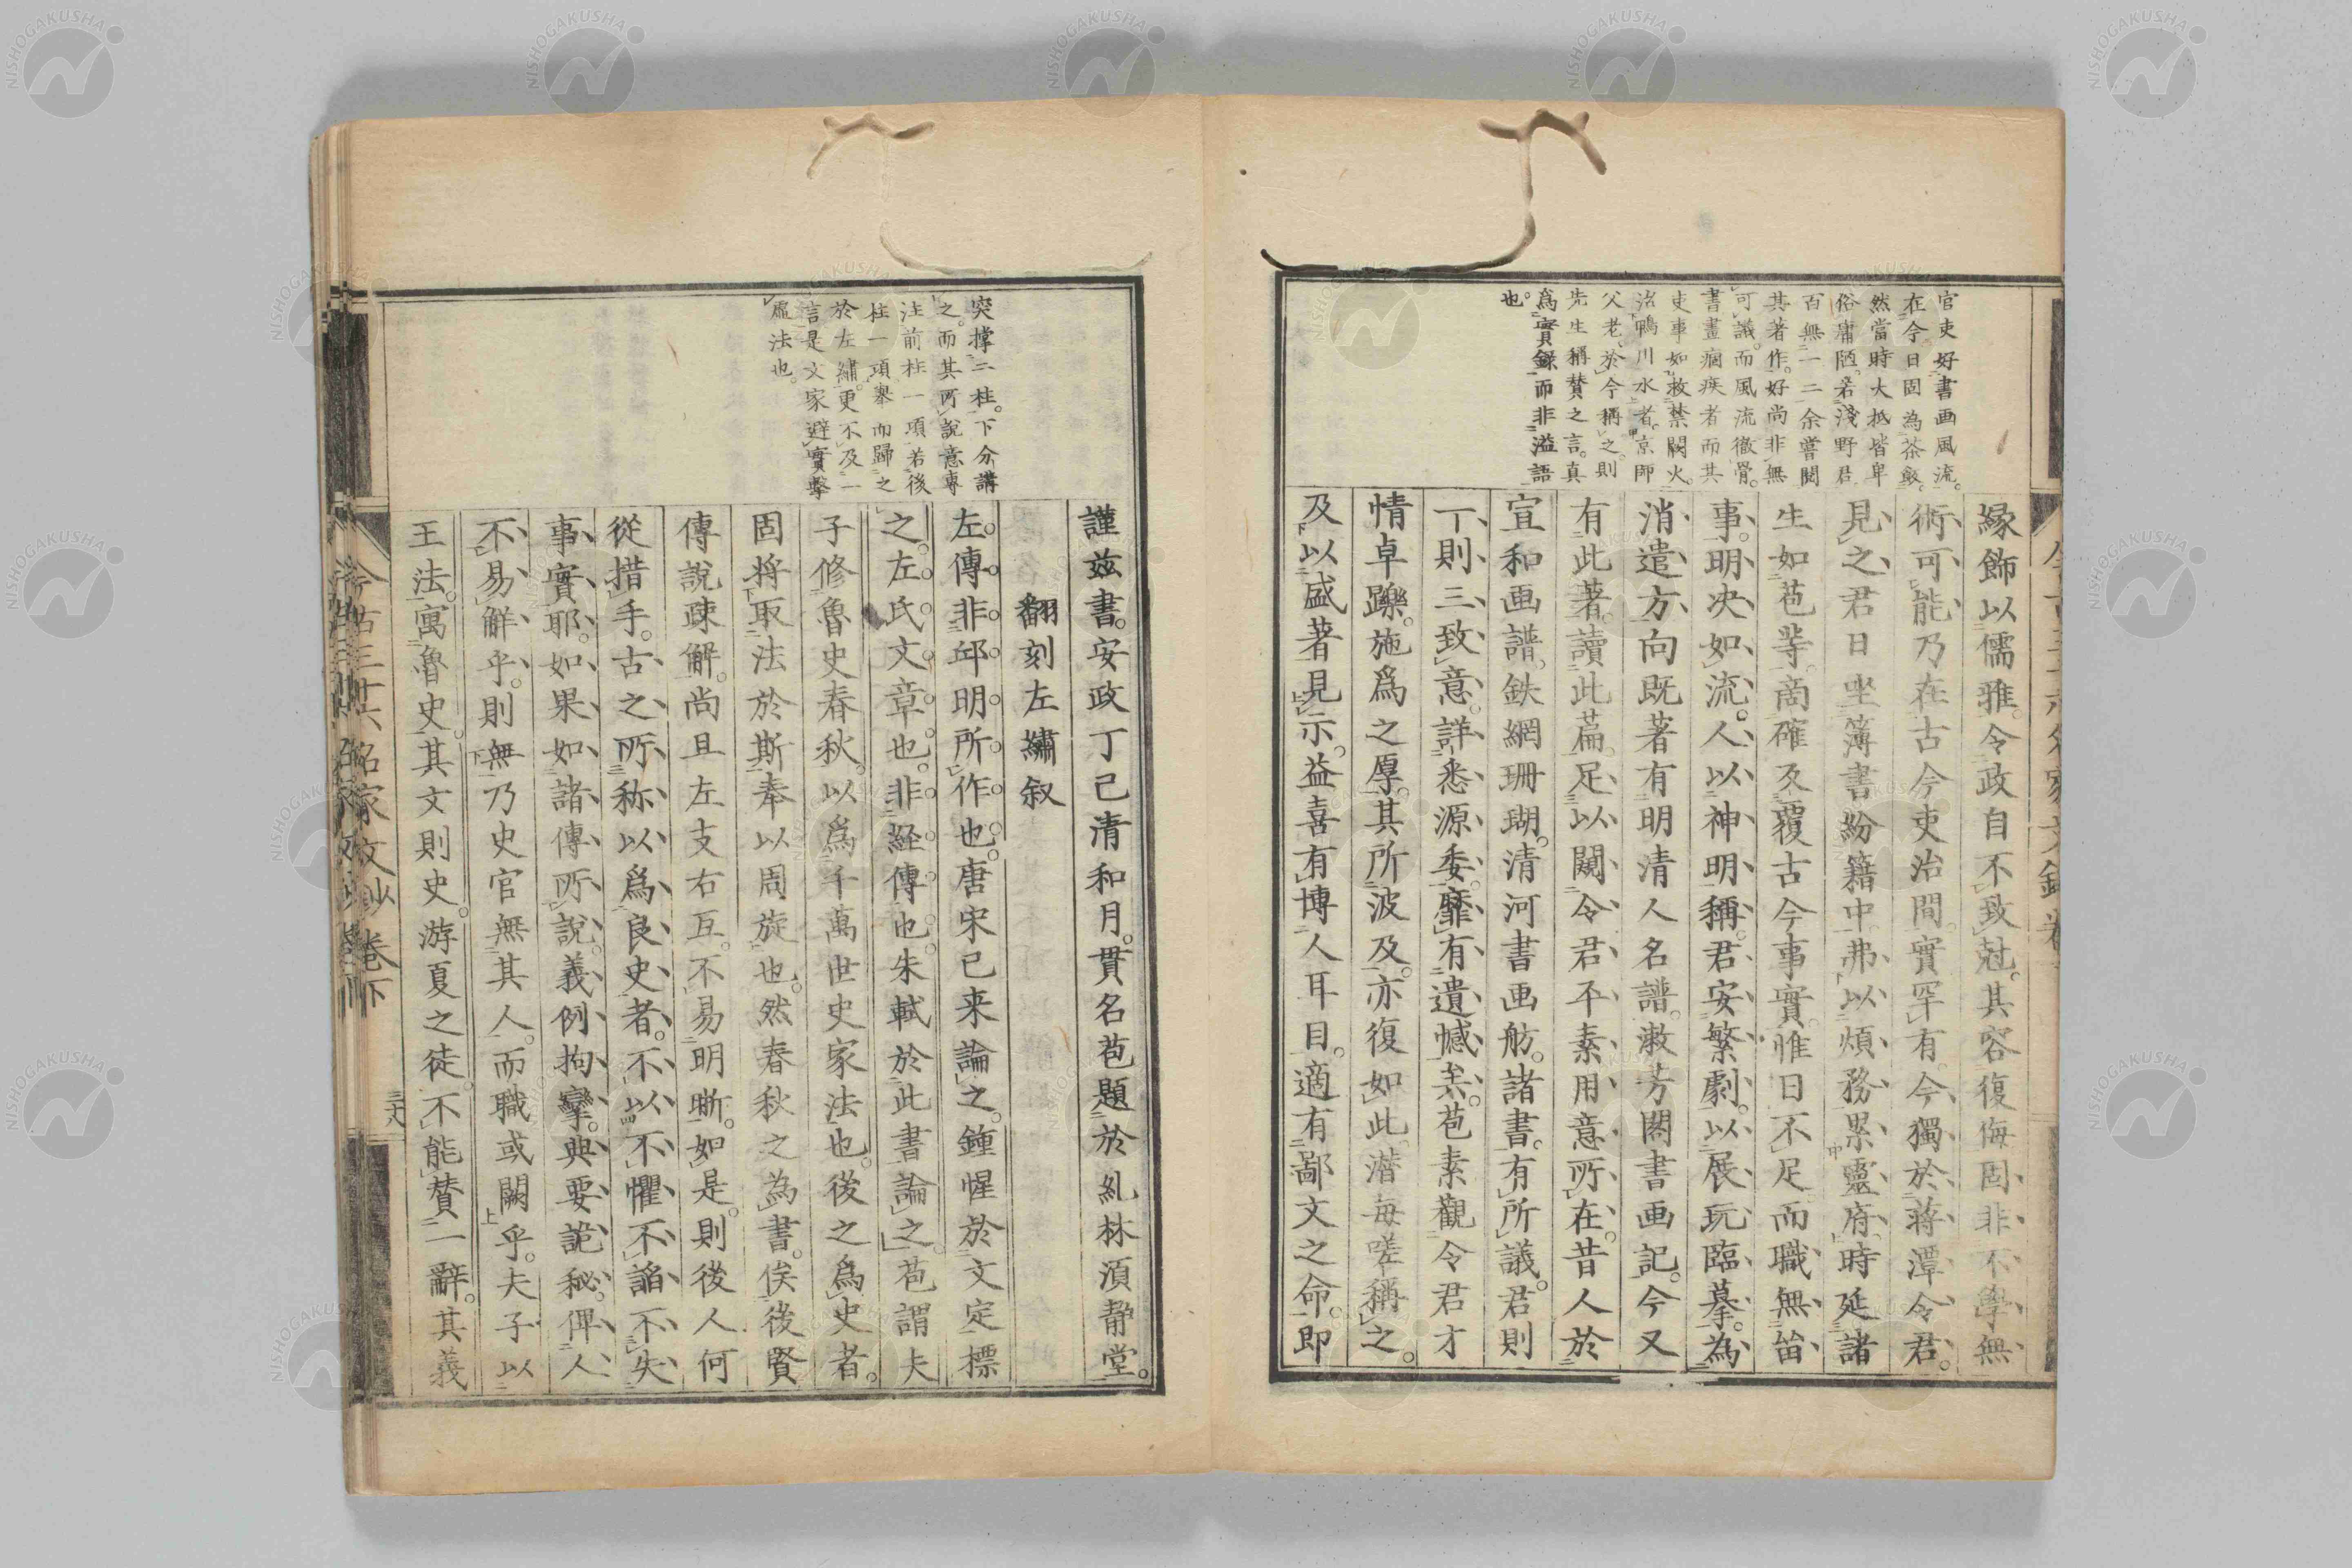 官吏好書画風流。
在今日固為茶敬。
然當時大抵皆卑
俗庸陋。若淺野君
百無一二余嘗閲
其著作。好尚非無
可議。而風流徹骨。
書畫痼疾者而其
吏事如救禁闕火。
治鴨川水者。京師
父老於今稱之。則
先生稱賛之言。真
爲實録而非溢語
也。
縁飾以儒雅。令政自不致尅。其容復侮固非不學無
術可能乃在古今吏治間。實罕有。今獨於蒋潭令君。
見之君日坐簿書紛籍中。弗以煩務累靈府。時延諸
生如苞等。商確及覆古今事實。惟日不足而職無笛
事。明决如流。人以神明稱。君安繁劇。以展玩臨摹。為
消遣方向既著有明清人名譜。漱芳閣書画記。今又
有此著。讀此篇。足以闚令君平素用意所在。昔人於
宣和画譜。鉄網珊瑚。清河書画舫。諸書。有所議。君則
一則三致意。詳悉源委。靡有遺憾矣。苞素觀令君才
情卓躒。施爲之厚。其所波及。亦復如此。潜毎嗟稱之。
及以盛著見示。益喜有博人耳目。適有鄙文之命。即
突撑二柱。下分講
之。而其所説意專
注前柱一項若後
柱一項擧而歸之
於左繡。更不及一
言是文家避實擊
虚法也。
謹茲書。安政丁己清和月。貫名苞題於糺林湏静堂。
翻刻左繡叙
左傳非邱明所作也。唐宋已来論之。鍾惺於文定標
之左氏文章也。非経傳也。朱軾於此書論之。苞謂夫
子修魯史春秋。以爲千萬世史家法也。後之爲史者。
固将取法於斯奉以周旋也。然春秋之為書。俟後賢
傳說疎解。尚且左支右互。不易明晣。如是。則後人何
從措手。古之所称以爲良史者。不以不懼不諂不失
事實耶。如果如諸傳所說。義例拘攣。典要詭秘。俾人
不易解乎。則無乃史官無其人。而職或闕乎。夫子以
王法。寓魯史。其文則史。游夏之徒。不能賛一辭。其義
今古三十六名家文鈔 巻下
三大